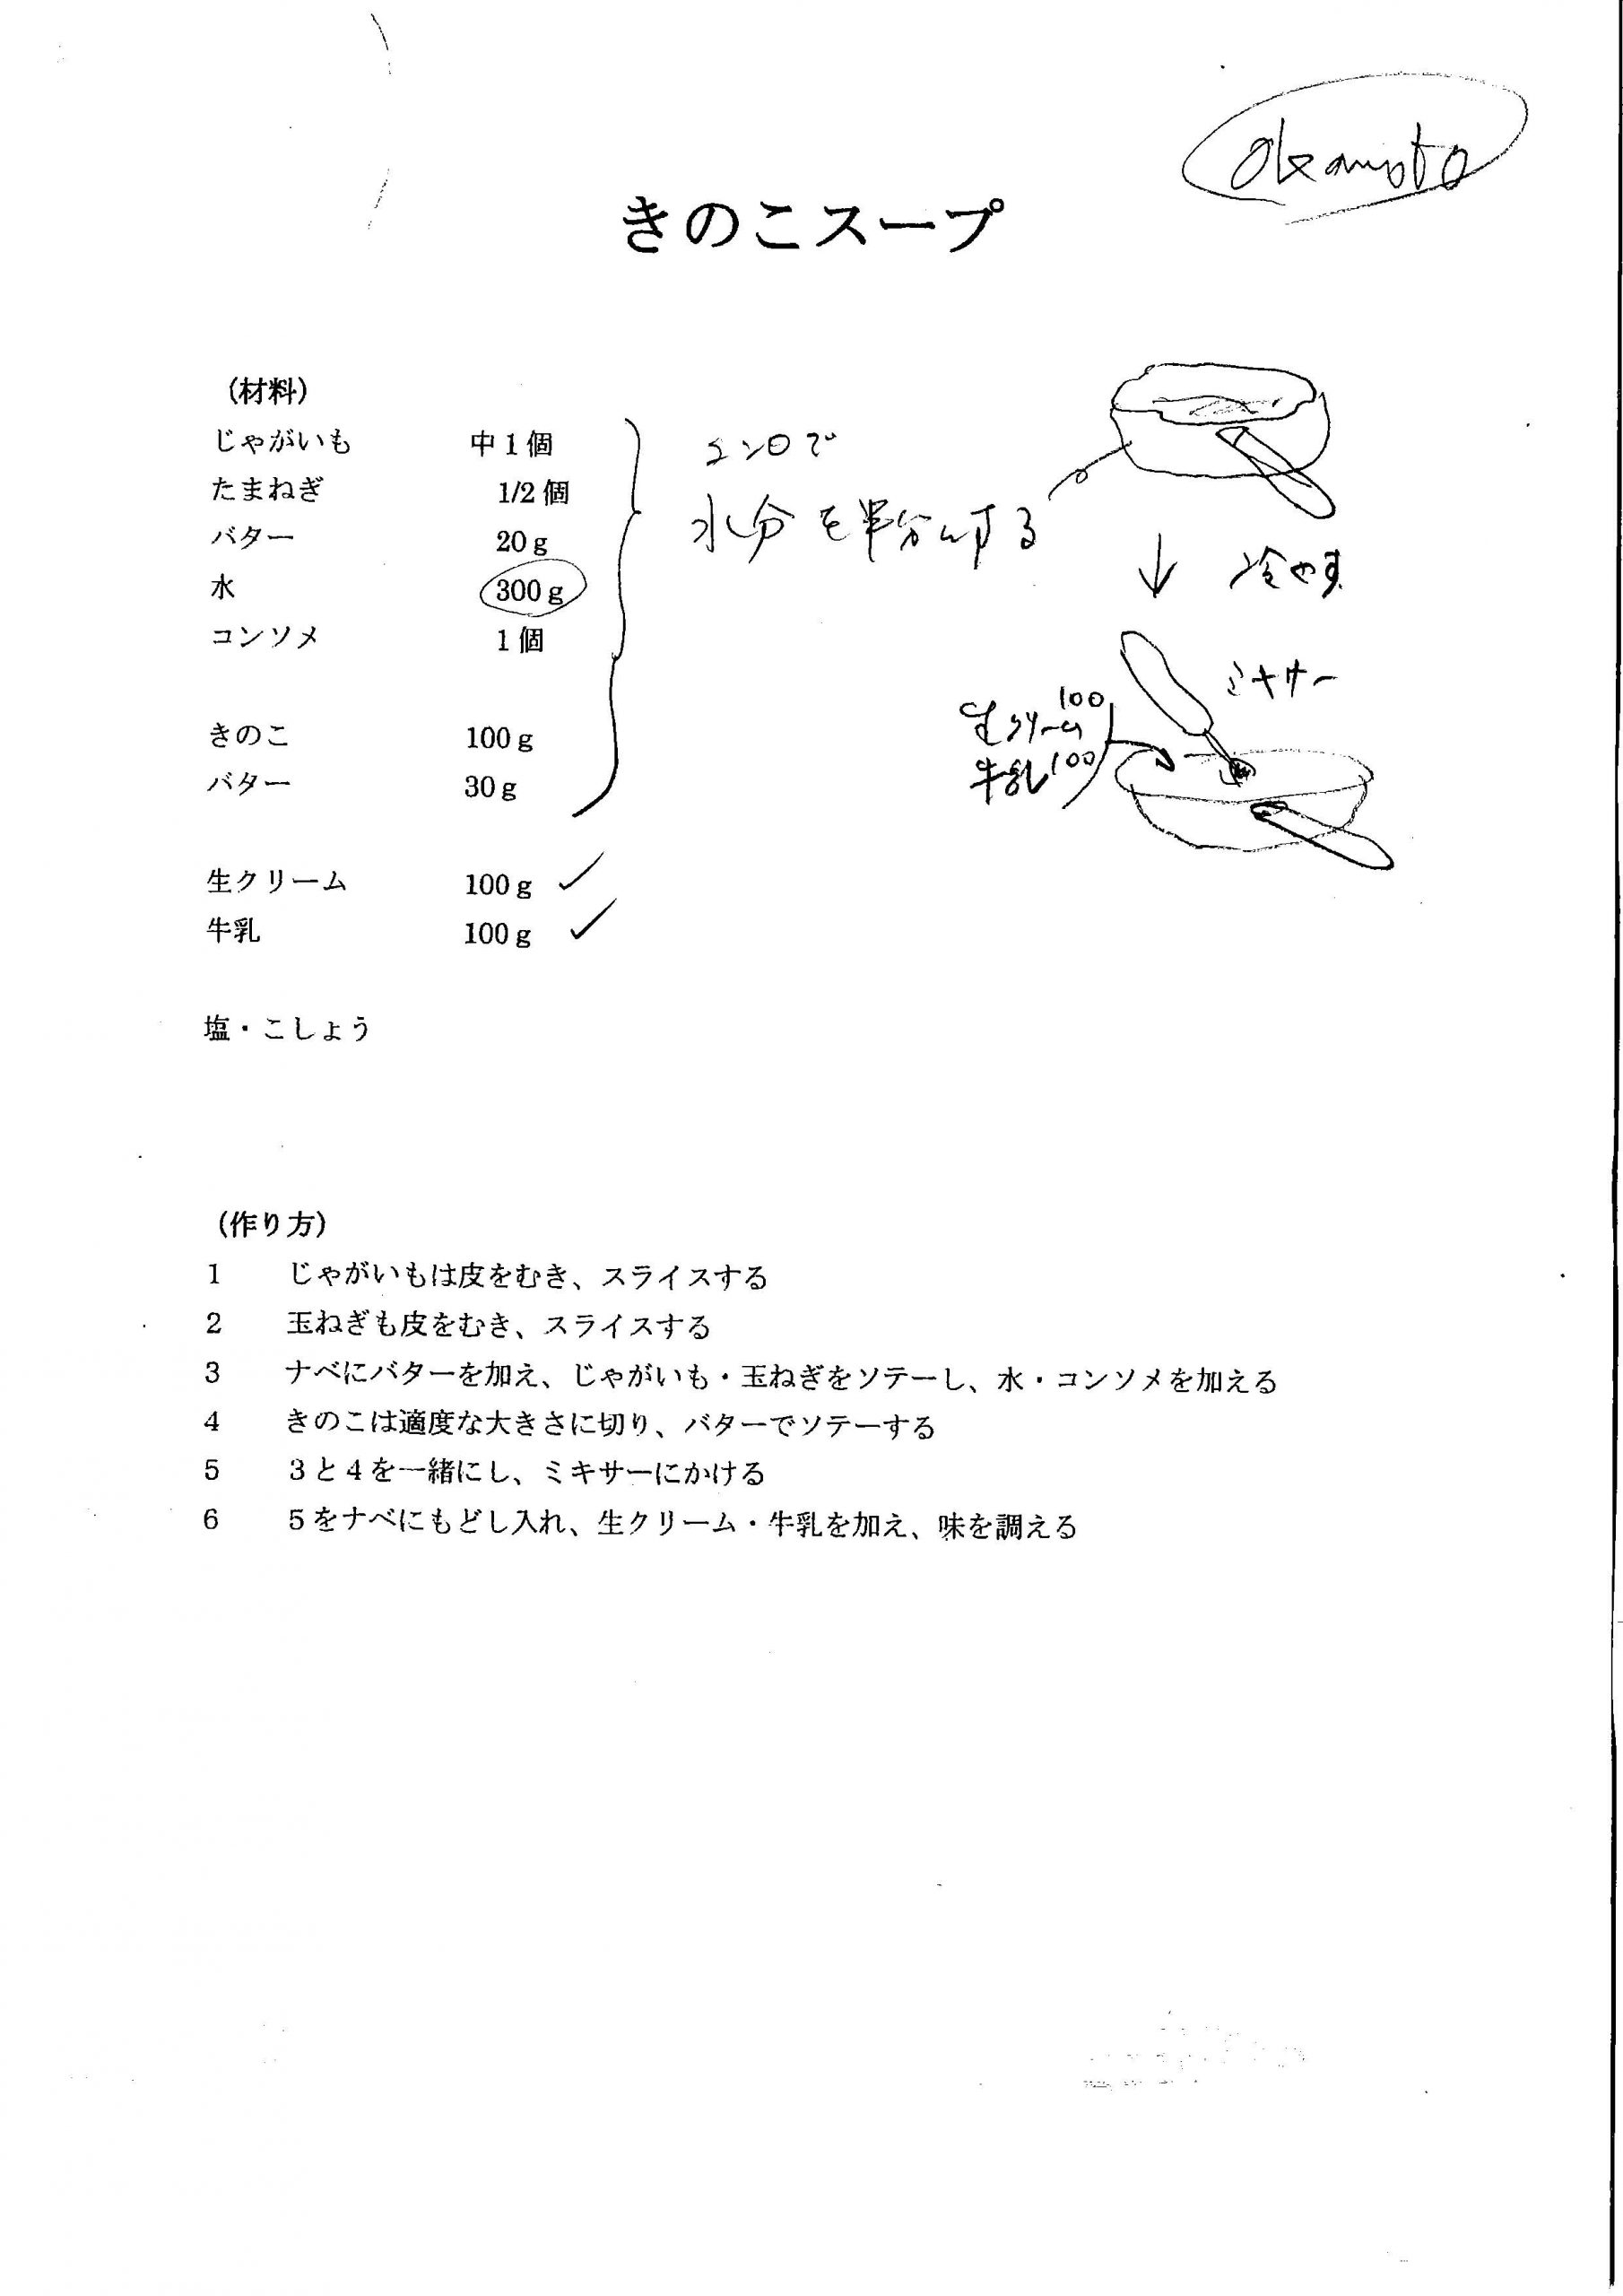 okamoto
きのこスープ
（材料）
じゃがいも 中１個
たまねぎ 1/2個
バター 20g
水 300g
コンソメ 1個
きのこ 100g
バター 30g
生クリーム 100g ✓
牛乳 100g ✓
塩・こしょう
コンロで
水分を半分にする
冷やす
ミキサー
生クリーム100
牛乳100
（作り方）
1 じゃがいもは皮をむき、スライスする
2 玉ねぎも皮をむき、スライスする
3 ナベにバターを加え、じゃがいも・玉ねぎをソテーし、水・コンソメを加える
4 きのこは適度な大きさに切り、バターでソテーする
5 ３と４を一緒にし、ミキサーにかける
6 ５をナベにもどし入れ、生クリーム・牛乳を加え、味を調える